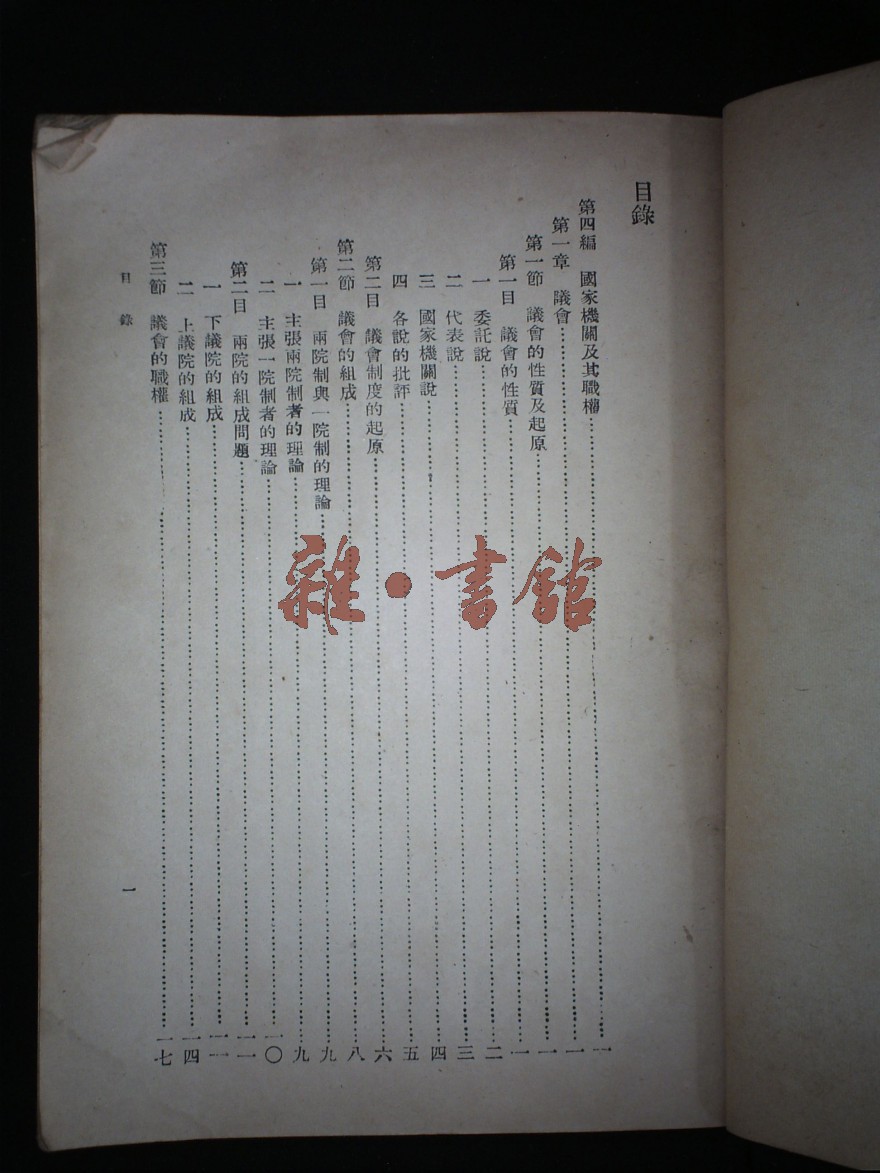 目錄
第四編 國家機關及其職權……一
第一章 議會……一
第一節 議會的性質及起原……一
第一目 議會的性質……一
一 委託說……二
二 代表說……三
三 國家機關說……四
四 各說的批評……五
第二目 議會制度的起原……六
第二節 議會的組成……八
第一目 兩院制與一院制的理論……九
一 主張兩院制者的理論……九
二 主張一院制者的理論……一〇
第二目 兩院的組成問題……一一
一 下議院的組成……一一
二 上議院的組成……一四
第三節 議會的職權……一七
目錄
一
雜·書館